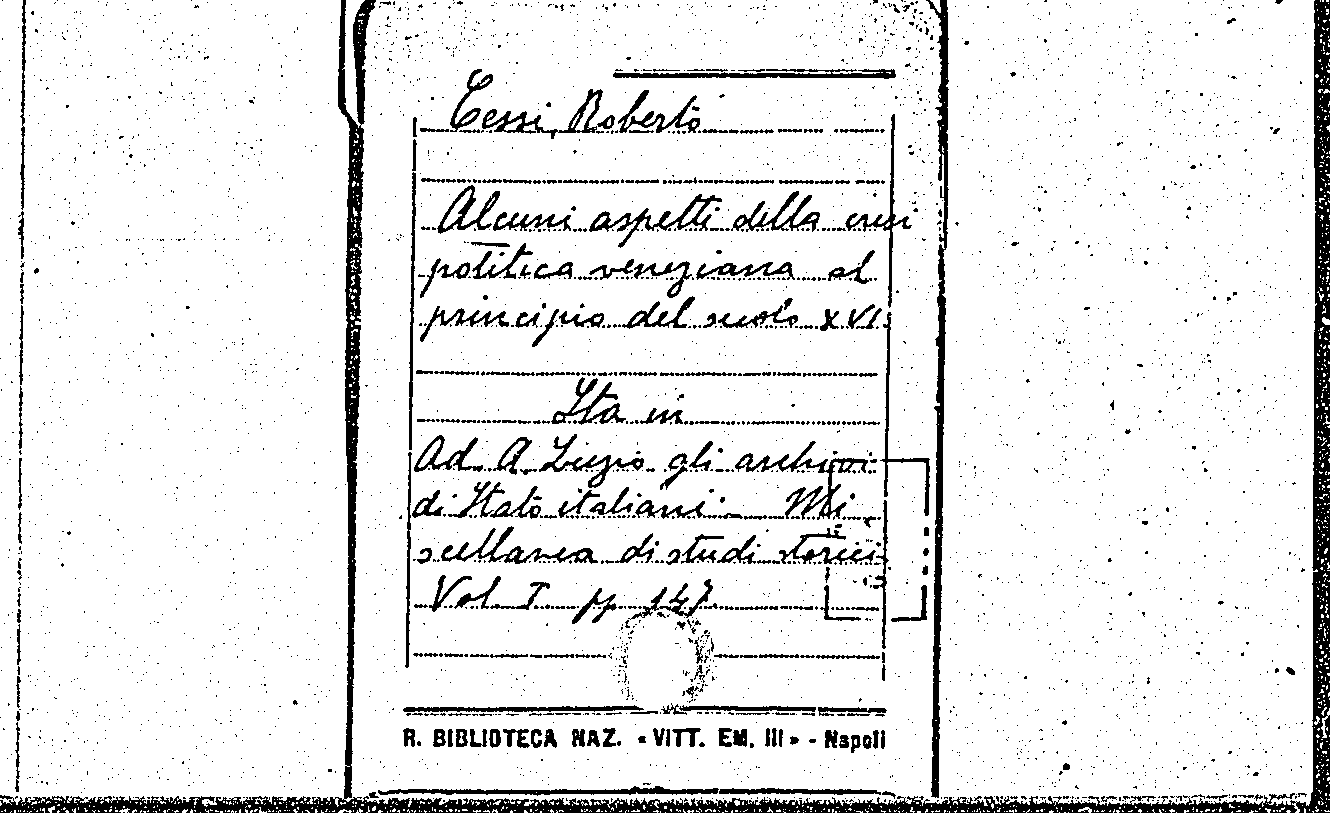 Cessi, Roberto
Alcuni aspetti della crisi
politica veneziana al
principio del secolo XVI.
Sta in
Ad A. Luzio gli archivi
di Stato italiani - Mi
scellanea di studi storici
Vol. I pp 147.
R. BIBLIOTECA NAZ. «VITT. EM. III» - Napoli